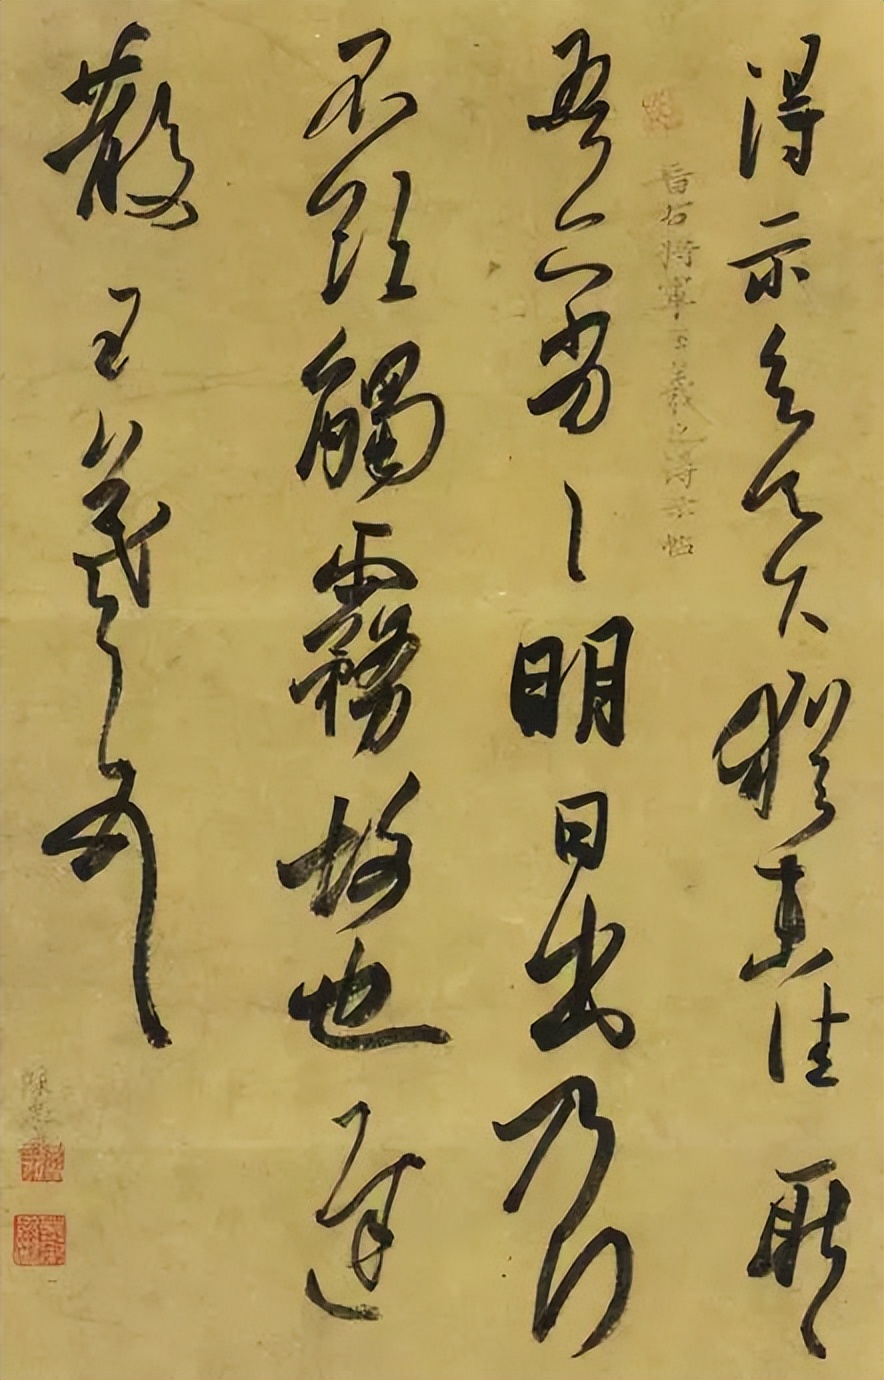 得示知足下猶未佳耿々
晉右將軍王羲之得示帖
吾亦劣々明日出乃行
不欲觸霧故也遲
散王羲之頓首
陳奕